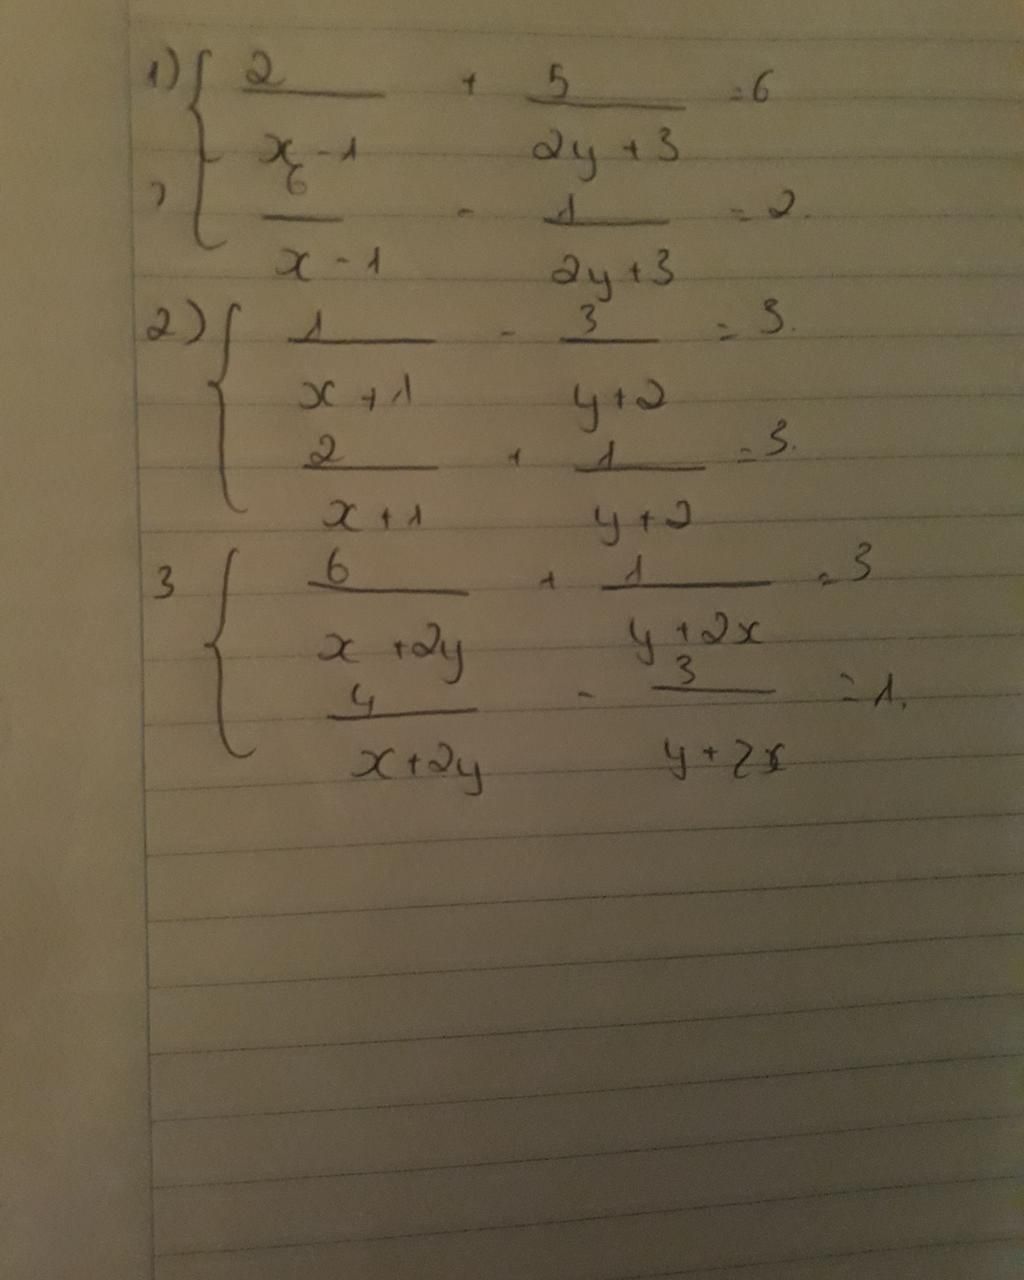 1) { 2/(x-1) + 5/(2y+3) = 6
6/(x-1) - 1/(2y+3) = 2.
2) { 1/(x+1) - 3/(y+2) = 3.
2/(x+1) + 1/(y+2) = 3.
3 { 6/(x+2y) + 1/(y+2x) = 3
4/(x+2y) - 3/(y+2x) = 1.